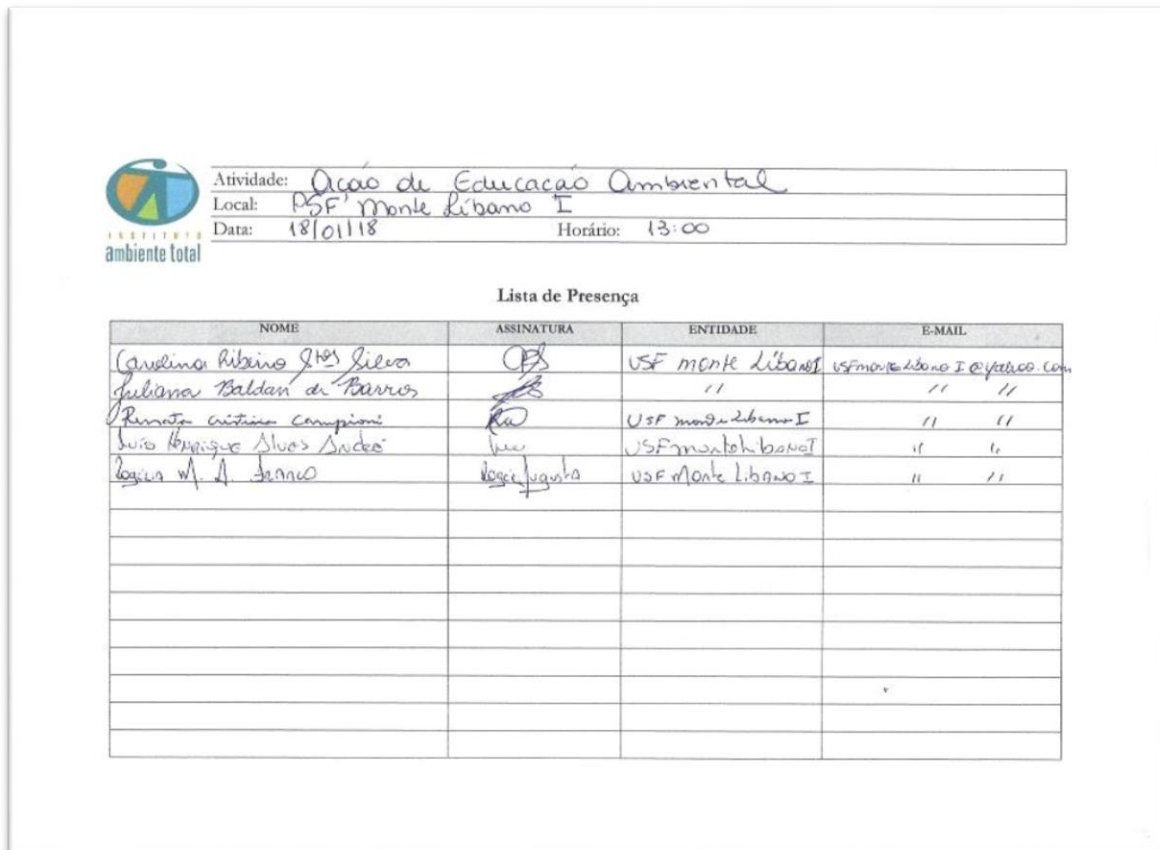 INSTITUTO
ambiente total
Atividade: Ação de Educação Ambiental
Local: PSF Monte Líbano I
Data: 18/01/18 Horário: 13:00
Lista de Presença
NOME ASSINATURA ENTIDADE E-MAIL
Carolina Ribeiro Stos Silva USF Monte Líbano I usfmonteLibano I @yahoo.com
Juliana Baldan de Barros " " "
Renata Cristina Campioni USF Monte Libano I " "
Luis Henrique Alves André USF Monte Libano I " "
M. A. Franco USF Monte Libano I " "